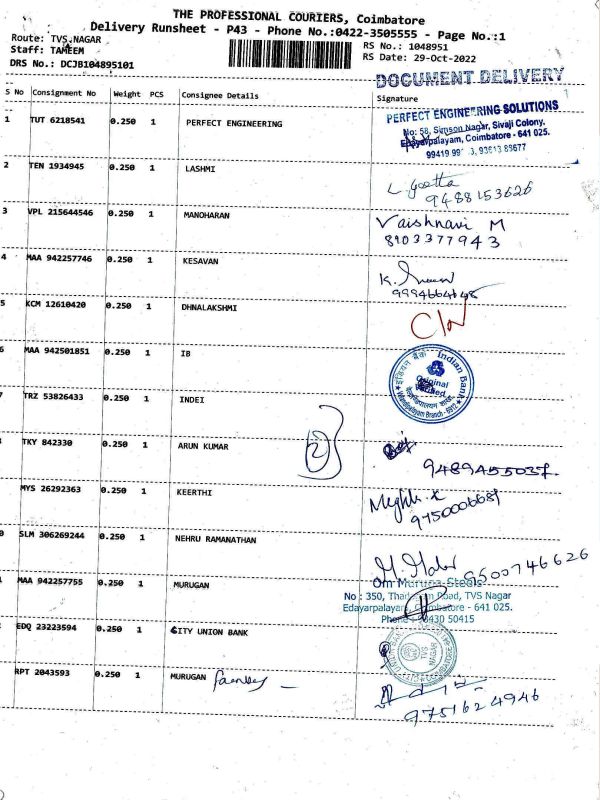 THE PROFESSIONAL COURIERS, Coimbatore
Delivery Runsheet - P43 - Phone No.:0422-3505555 - Page No.:1
Route: TVS.NAGAR RS No.: 1048951
Staff: TAMEEM RS Date: 29-Oct-2022
DRS No.: DCJB104895101
DOCUMENT DELIVERY
S No Consignment No Weight PCS Consignee Details Signature
PERFECT ENGINEERING SOLUTIONS
1 TUT 6218541 0.250 1 PERFECT ENGINEERING
No: 58, Simson Nagar, Sivaji Colony,
Edayarpalayam, Coimbatore - 641 025.
2 TEN 1934945 0.250 1 LASHMI
L. geetha
9488153626
3 VPL 215644546 0.250 1 MANOHARAN
Vaishnavi M
8103377943
4 MAA 942257746 0.250 1 KESAVAN
9994664648
5 KCM 12610420 0.250 1 DHNALAKSHMI
6 MAA 942501851 0.250 1 IB
Indian Bank
7 TRZ 53826433 0.250 1 INDEI
2
TKY 842330 0.250 1 ARUN KUMAR
9489455037.
MYS 26292363 0.250 1 KEERTHI
9750006681
0 SLM 306269244 0.250 1 NEHRU RAMANATHAN
9500746626
Om Muruga Steels
MAA 942257755 0.250 1 MURUGAN
No : 350, Road, TVS Nagar
Edayarpalayam, Coimbatore - 641 025.
Phone : 98430 50415
EDQ 23223594 0.250 1 CITY UNION BANK
TVS NAGAR
RPT 2043593 0.250 1 MURUGAN
9751624946